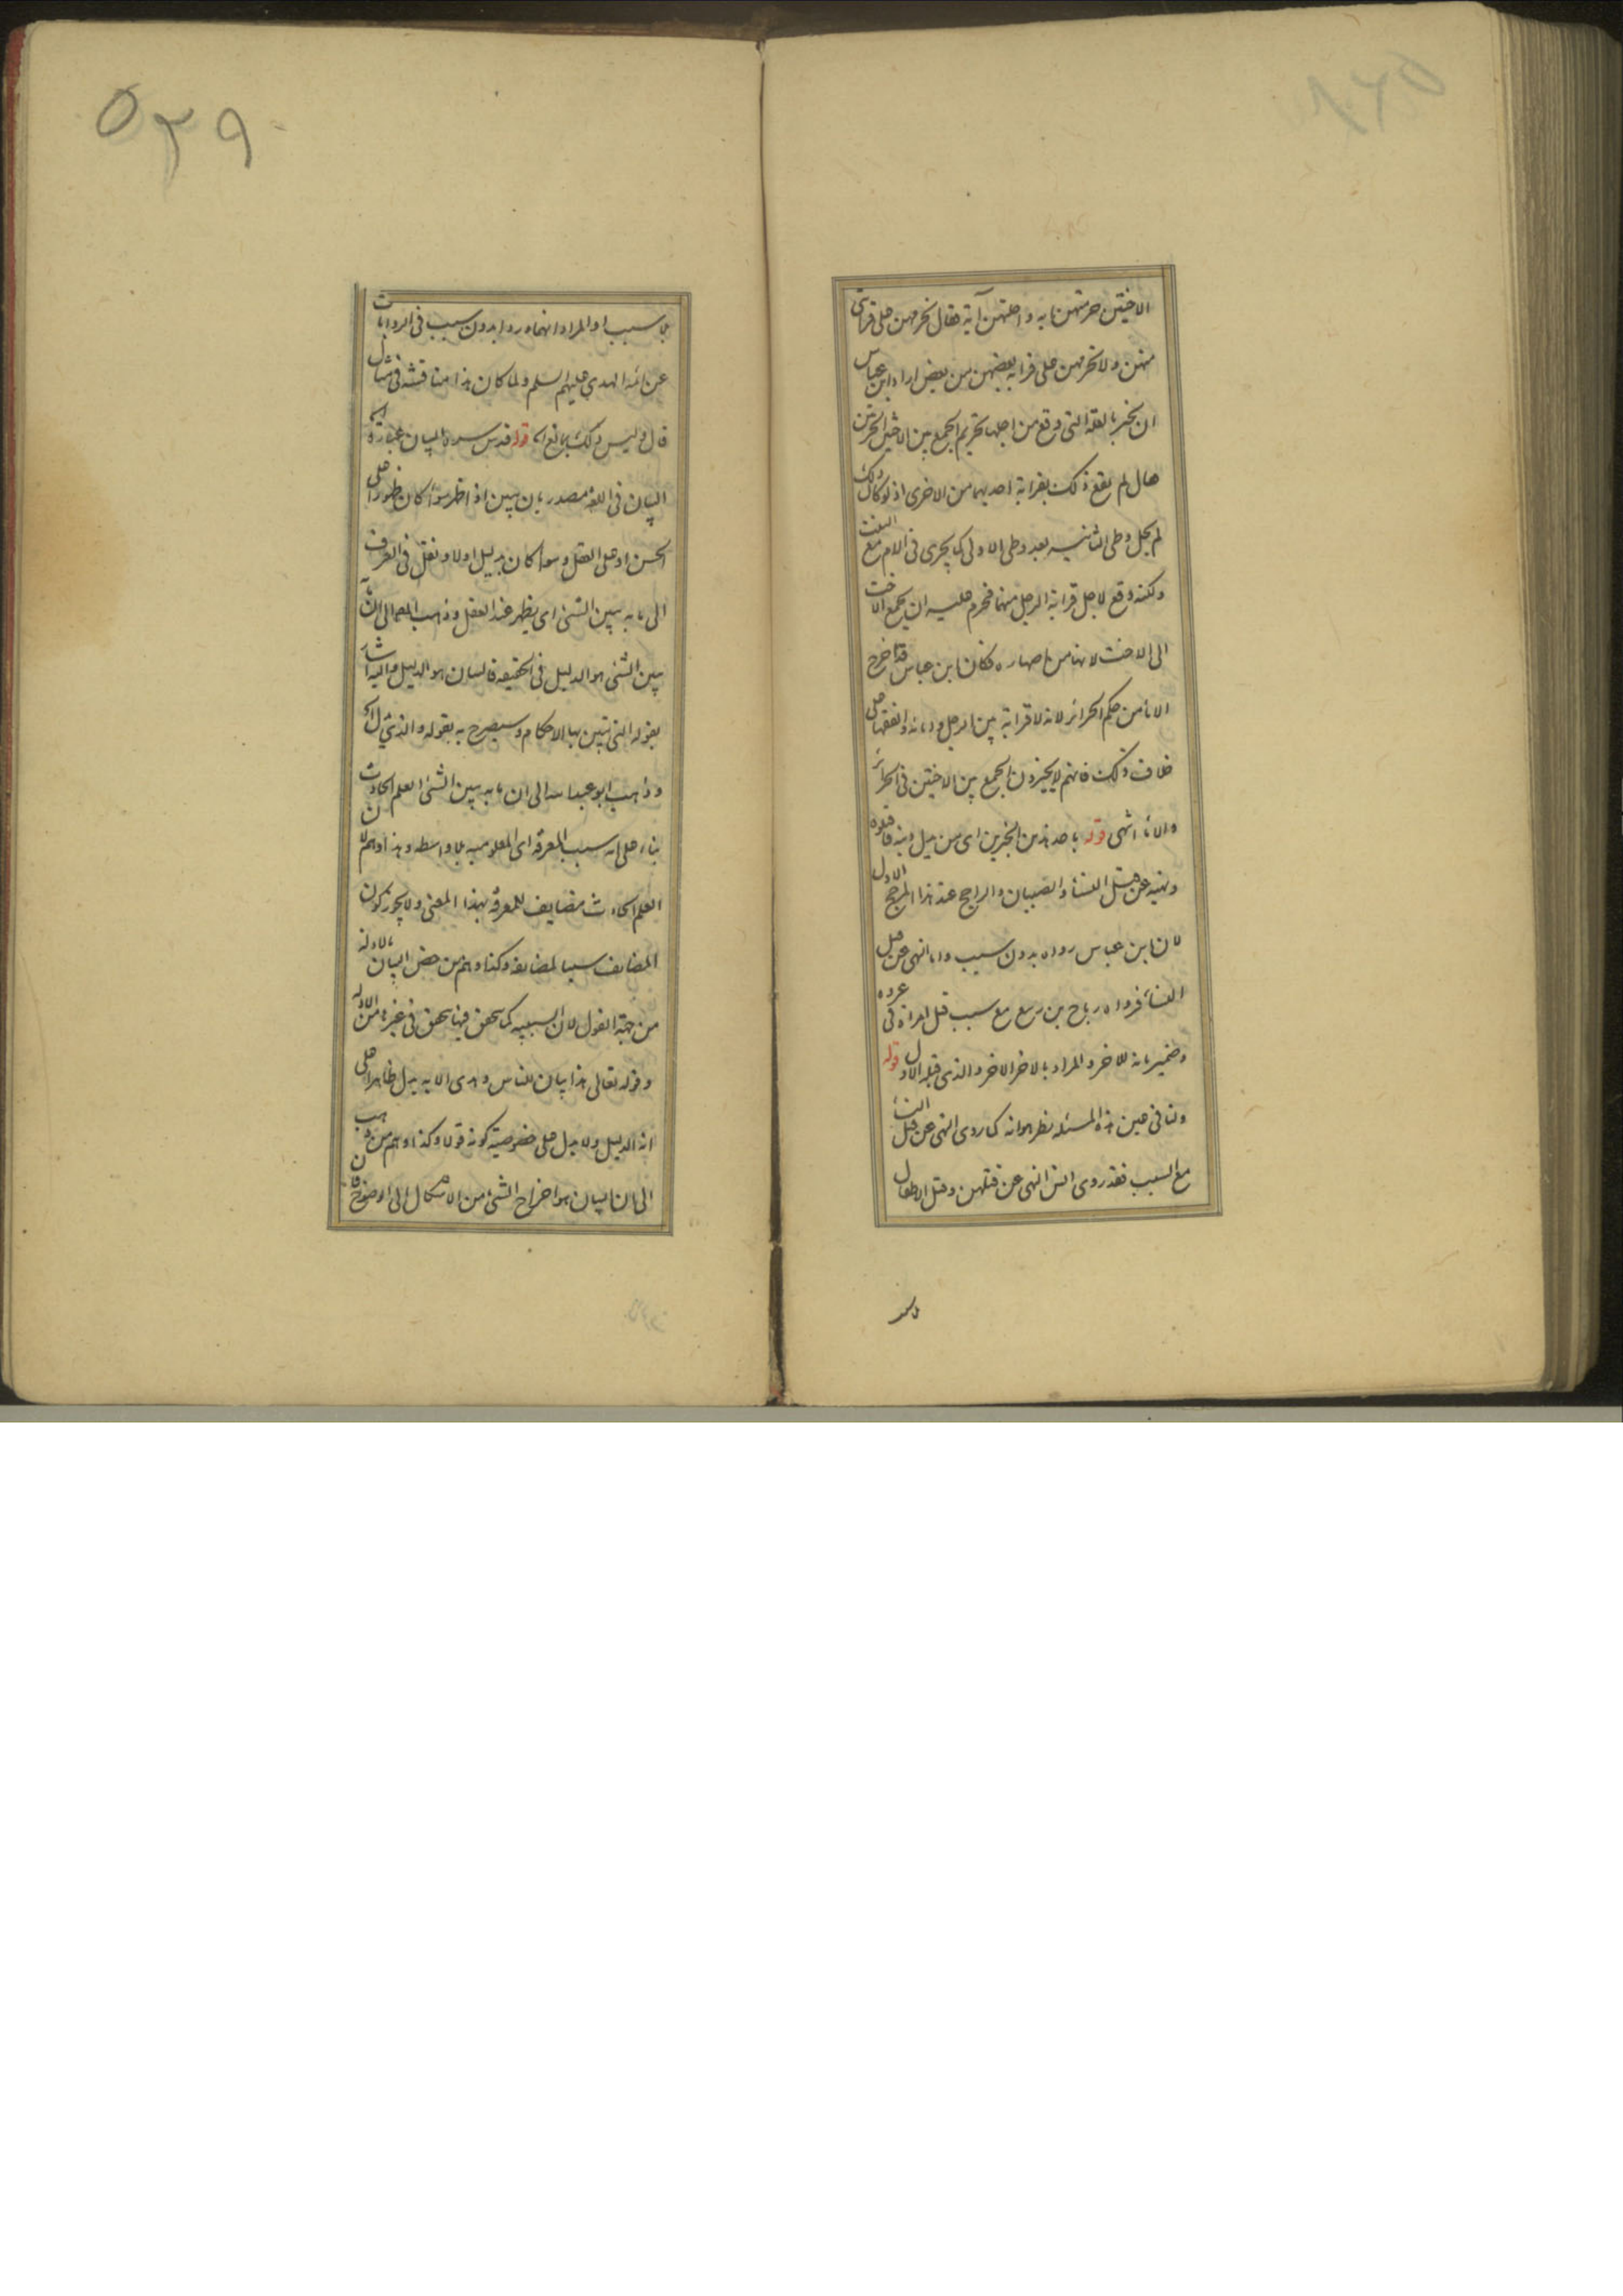 الاختين حرمتهن آية واحلتهن آية فقال تحرمهن على قرابتى
منهن ولا تحرمهن على قرابة بعضهن من بعض اراد ابن عباس
ان يخبر بالعلة التى وقع من اجلها تحريم الجمع بين الاختين الحرتين
فقال لم يقع ذلك بقرابة احديهما من الاخرى اذ لو كان ذلك
لم يحل وطى الثانيه بعد وطى الاولى كما يجرى فى الام مع البنت
ولكنه وقع لاجل قرابة الرجل منهما فحرم عليه ان يجمع الاخت
الى الاخت لانها من اصهاره فكان ابن عباس قد اخرج
الاماء من حكم الحرائر لانه لا قرابة بين الرجل وامائه والفقهاء على
خلاف ذلك فانهم لا يجيزون الجمع بين الاختين فى الحرائر
والاماء انتهى قوله باحد هذين الخبرين اى من بدل دينه فاقتلوه
ونهيه عن قتل النساء والصبيان والراجح عند هذا المرجح الاول
لان ابن عباس رواه بدون سبب واما النهى عن قتل
النساء فرواه رباح بن ربيع مع سبب قتل امراة فى غزوة
وضمير بانه للاخر والمراد بالاخر الاخر والذى قبله الاول قوله
ولنا فى عين هذه المسئله نظر هو انه كما روى النهى عن قتل النساء
مع السبب فقد روى انس النهى عن قتلهن وقتل الاطفال
بلا سبب
بلا سبب او المراد انهما وردا بدون سبب فى الروايات
عن ائمة الهدى عليهم السلم ولما كان هذا مناقشه فى مثال
قال وليس ذلك بمانع اه قوله قدس سره البيان عبارة اه
البيان فى اللغه مصدر بان يبين اذا ظهر سواء كان ظهورا على
الحسن او على العقل وسواء كان بدليل اولا ونقل فى العرف
الى ما به يبين الشئ اى يظهر عند العقل وذهب العمالى الى ان ما به
يبين الشئ هو الدليل فى الحقيقه فالبيان هو الدليل واليه اشار
بقوله التى تبين بها الاحكام وسيصرح به بقوله والذى يدل اه
وذهب ابو عبد الله الى ان ما به يبين الشئ العلم الحادث
بناء على انه سبب المعرفه اى المعلوميه بلا واسطه وهذا وهم لان
العلم الحادث مضايف للمعرفه بهذا المعنى ولا يجوز كون
المضايف سببا لمضايفه وكذا وهم من خص البيان بالادله
من جهة القول لان السببيه كما يتحقق فيها يتحقق فى غيرها من الادله
وقوله تعالى هذا بيان للناس وهدى الايه يدل ظاهرا على
انه الدليل ولا يدل على خصوصية كونه قولا وكذا وهم من ذهب
الى ان البيان هو اخراج الشئ من الاشكال الى الوضوح فان